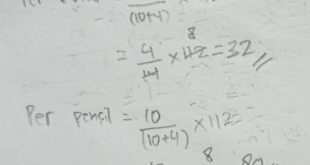 (10+4)
8
= 4/14 × 112 = 32 //
Per pencil = 10/(10+4) × 112 =
8